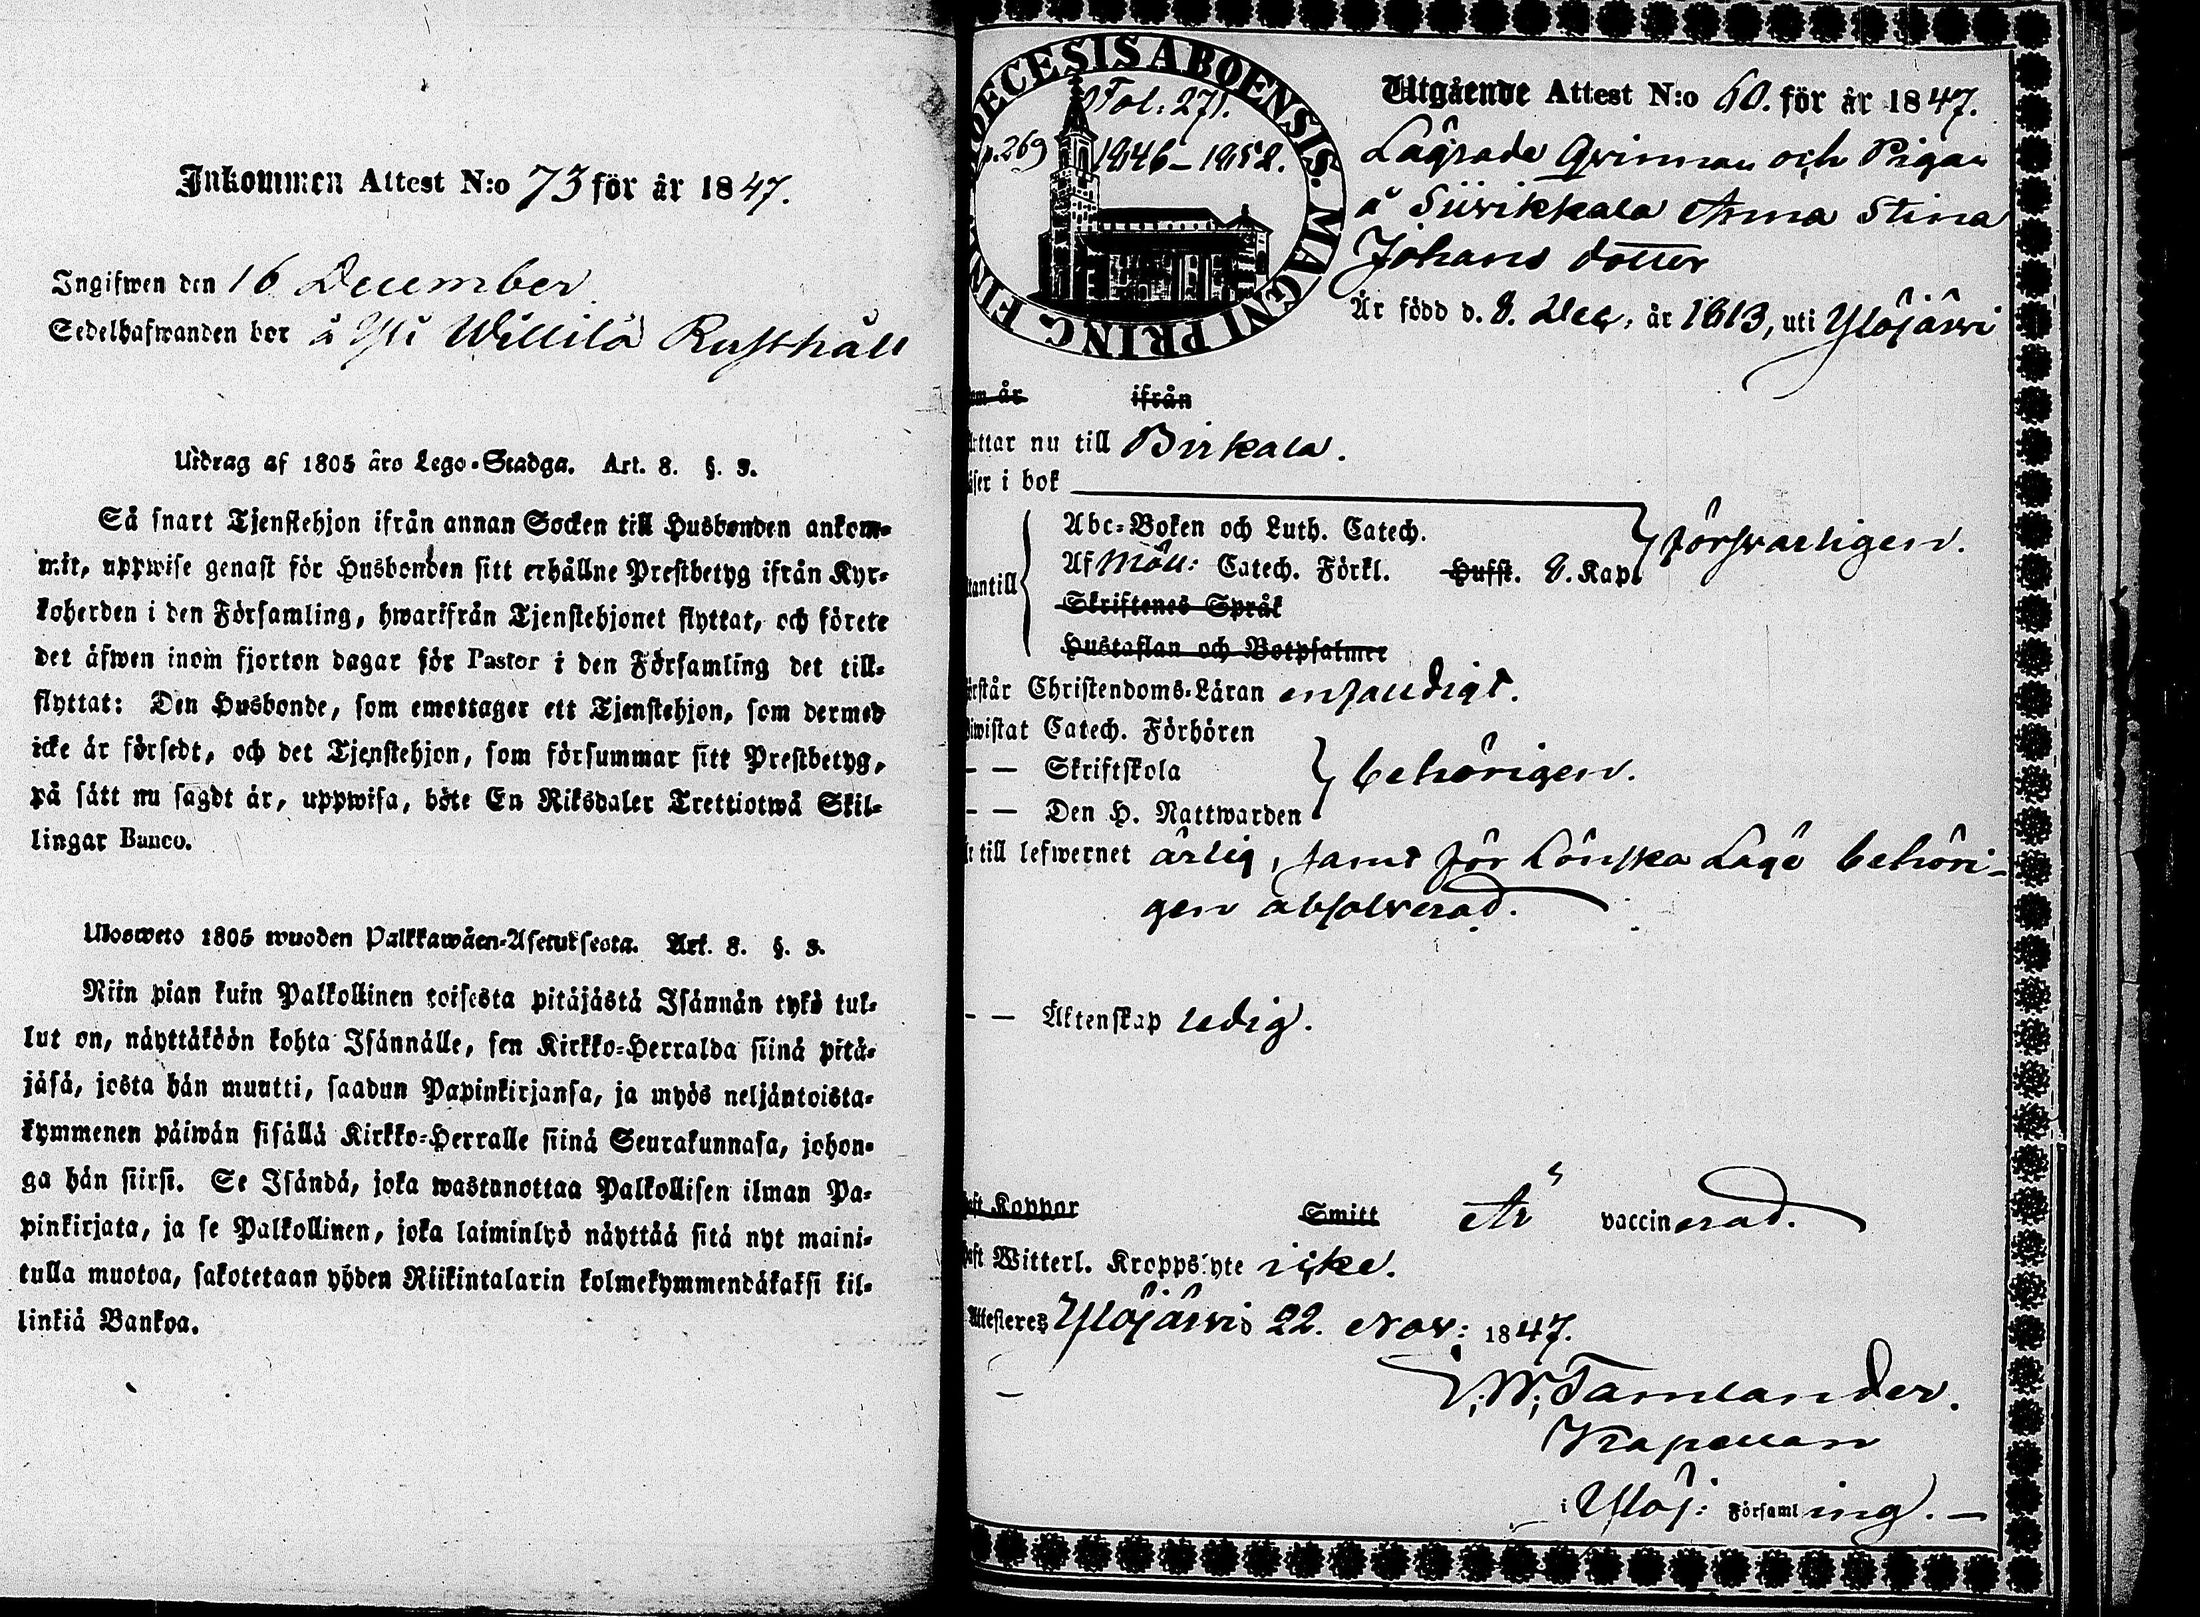 Inkommen Attest N:o 73 för år 1847.
Ingifwen den 16 December
Sedelhafwanden bor å Yli Willilä Rusthåll
Utdrag af 1805 års Lego-Stadga. Art. 8. §. 3.
Så snart Tjenstehjon ifrån annan Socken till Husbonden ankom-
mit, uppwise genast för Husbonden sitt erhållne Prestbetyg ifrån Kyr-
koherden i den Församling, hwarifrån Tjenstehjonet flyttat, och förete
det äfwen inom fjorton dagar för Pastor i den Församling det till-
flyttat: Den Husbonde, som emottager ett Tjenstehjon, som dermed
icke är försedt, och det Tjenstehjon, som försummar sitt Prestbetyg,
på sätt nu sagdt är, uppwisa, böte En Riksdaler Trettiotwå Skil-
lingar Banco.
Ulosweto 1805 wuoden Palkkawäen-Asetuksesta. Art. 8. §. 3.
Niin pian kuin Palkollinen toisesta pitäjästä Isännän tykö tul-
lut on, näyttäköön kohta Isännälle, sen Kirkko-Herralda siinä pitä-
jäsä, josta hän muutti, saadun Papinkirjansa, ja myös neljäntoista-
kymmenen päiwän sisällä Kirkko-Herralle siinä Seurakunnasa, johon-
ga hän siirsi. Se Isändä, joka wastanottaa Palkollisen ilman Pa-
pinkirjata, ja se Palkollinen, joka laiminlyö näyttää sitä nyt maini-
tulla muotoa, sakotetaan yhden Riikintalarin kolmekymmendäkaksi kil-
linkiä Bankoa.
DIOECESIS ABOENSIS. MAGNI PRINC. FIN
Fol: 271.
p.269 1846-1852.
Utgående Attest N:o 60. för år 1847.
Lägrade Qvinnan och Pigan
å Siivikkala Anna Stina
Johans dotter
Är född d. 8. Dec, år 1813, uti Ylöjärvi
om år ifrån
ttar nu till Birkala.
äser i bok
Abc-Boken och Luth. Catech.
Af Möll: Catech. Förkl. Hufst. 8. Kap. försvarligen.
tantill
Skriftenes Språk
Hustaflan och Botpsalmer
rstår Christendoms-Läran enfaldigt.
iwistat Catech. Förhören
– – Skriftskola behörigen.
– – Den H. Nattwarden
till lefwernet ärlig, samt för Lönska Läge behöri-
gen absolverad.
– – Äktenskap ledig.
ft Koppor Smitt Är vaccinerad.
aft Witterl. Kroppslyte icke.
Attesteres Ylöjärvi d 22. Nov: 1847.
Tamlander.
Kapellan
i Ylöj: Församling. –